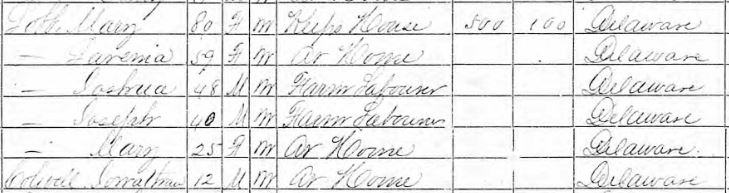 Mary 89 F M Keeps House 500 100 Delaware
— Lavenia 59 F M At Home Delaware
— Joshua 48 M M Farm Labourer Delaware
— Joseph 40 M M Farm Labourer Delaware
— Mary 25 F M At Home Delaware
12 M M At Home Delaware